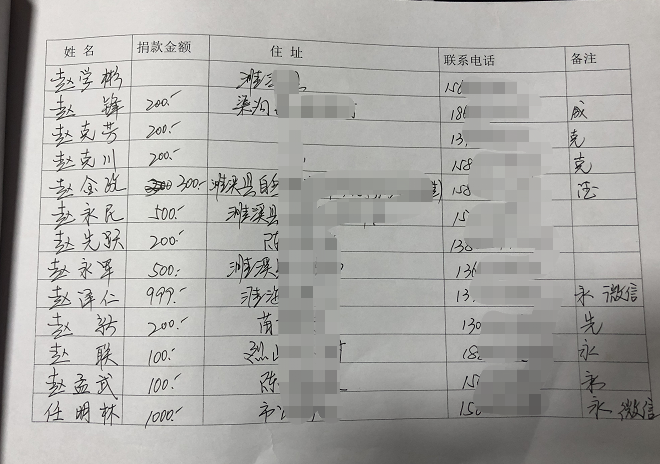 姓名 捐款金额 住址 联系电话 备注
赵学彬 濉 156
赵锋 200.- 渠沟 186 成
赵克芳 200.- 13 克
赵克川 200.- 158 克
赵金政 300.- 濉溪县 158
赵永民 500.- 濉溪县 15
赵先跃 200.- 陈 138
赵永军 500.- 濉溪 136
赵泽仁 999.- 淮海 13 永 微信
赵 200.- 萧 130 先
赵联 100.- 烈山 18 永
赵孟武 100.- 陈 15 永
任明林 1000.- 市 150 永 微信